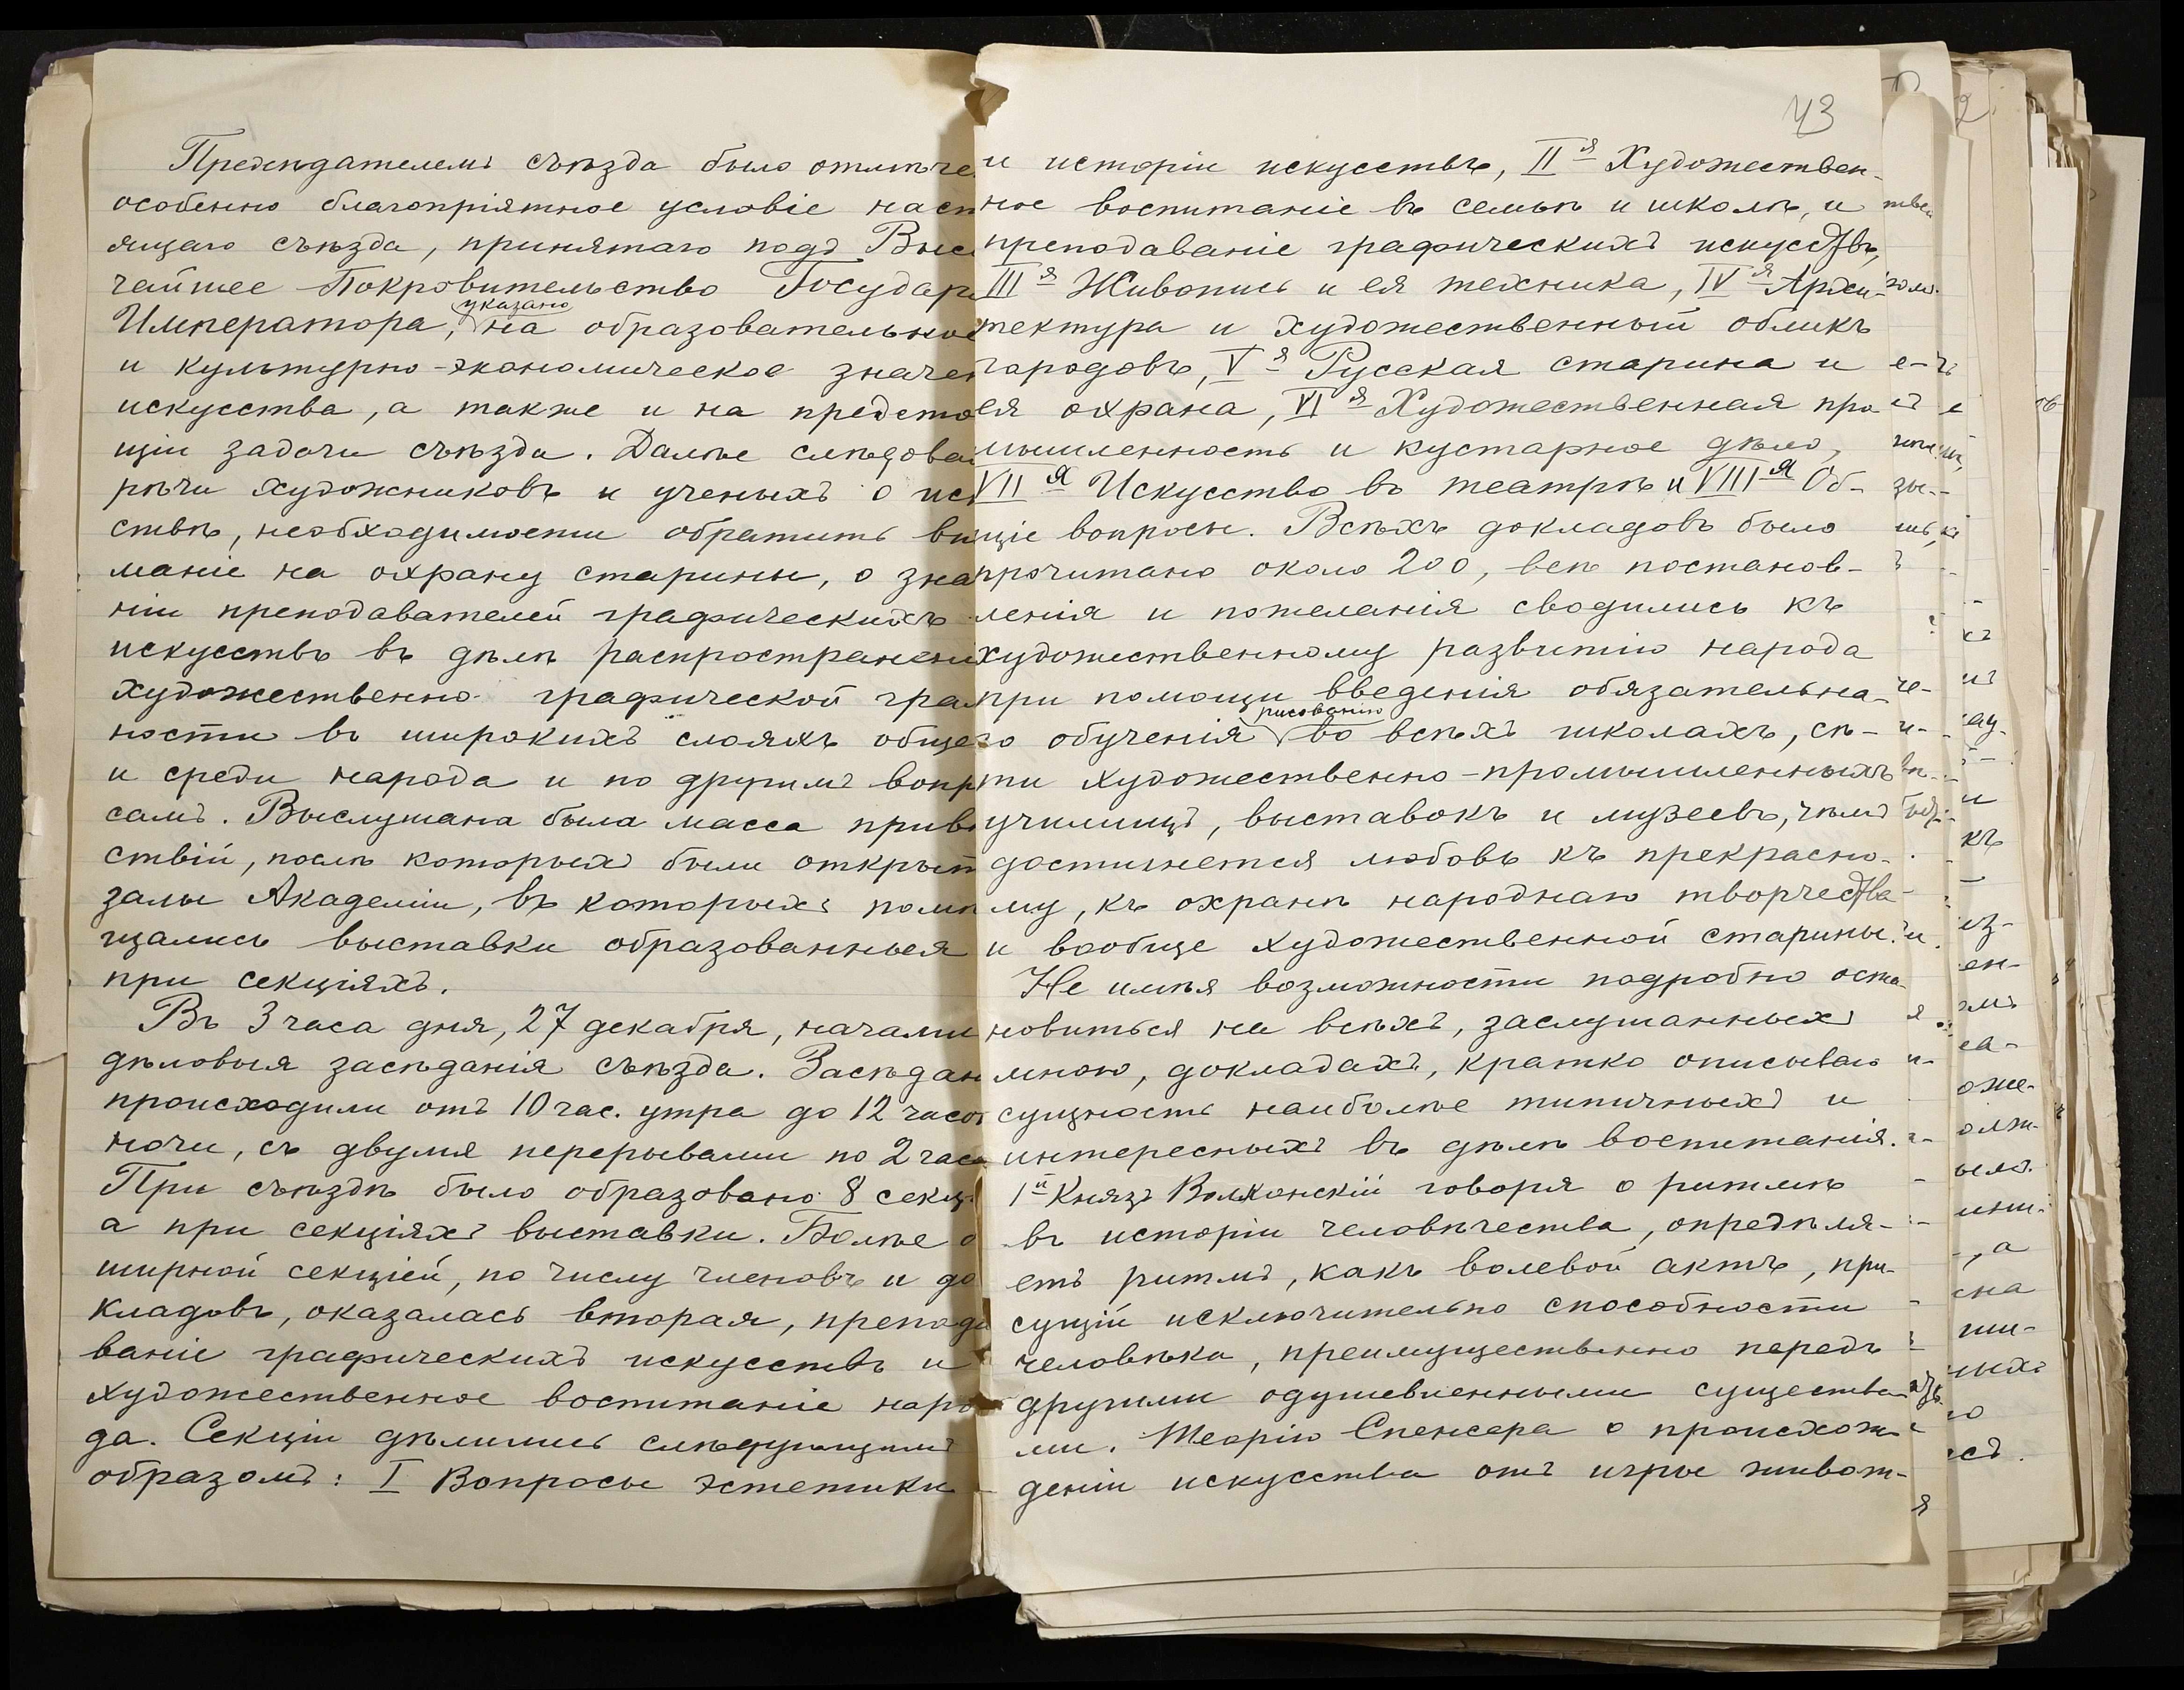 Предсѣдателемъ съѣзда было отмѣче
особенно благопріятное условіе наст
ящаго съѣзда, принятаго подъ Выс
чайшее Покровительство Государ
указано
Императора, на образовательное
и культурно-экономическое значен
искусства, а также и на предсто
щіи задачи съѣзда. Далѣе слѣдова
рѣчи художниковъ и ученыхъ о ис
ствѣ, необходимости обратить вн
маніе на охрану старины, о зна
ніи преподавателей графическихъ
искусствъ въ дѣлѣ распространені
художественно графической гра
ности въ широкихъ слояхъ общес
и среди народа и по другимъ вопр
самъ. Выслушана была масса привѣ
ствій, послѣ которыхъ были открыт
залы Академіи, въ которыхъ помѣ
щались выставки образованныя
при секціяхъ.
Въ 3 часа дня, 27 декабря, начали
дѣловыя засѣданія съѣзда. Засѣдан
происходили отъ 10 час. утра до 12 часов
ночи, съ двумя перерывами по 2 часа
При съѣздѣ было образовано 8 секц
а при секціяхъ выставки. Болѣе о
ширной секціей, по числу членовъ и до
кладовъ, оказалась вторая, препода
ваніе графическихъ искусствъ и
художественное воспитаніе наро
да. Секціи дѣлились слѣдующимъ
образомъ: I Вопросы эстетики
43
и исторіи искусствъ, IIя Художествен-
ное воспитаніе въ семьѣ и школѣ, и
преподаваніе графическихъ искусствъ,
IIIя Живопись и ея техника, IVя Архи-
тектура и художественный обликъ
городовъ, Vя Русская старина и
ея охрана, VIя Художественная про
мышленность и кустарное дѣло,
VIIя Искусство въ театрѣ и VIIIя Об-
щіе вопросы. Всѣхъ докладовъ было
прочитано около 200, всѣ постанов-
ленія и пожеланія сводились къ
художественному развитію народа
при помощи введенія обязательна-
рисованію
го обученія во всѣхъ школахъ, сѣ-
ти художественно-промышленныхъ
училищъ, выставокъ и музеевъ, чѣмъ
достигнется любовь къ прекрасно-
му, къ охранѣ народнаго творчества
и вообще художественной старины.
Не имѣя возможности подробно оста-
новиться на всѣхъ, заслушанныхъ
мною, докладахъ, кратко описываю
сущность наиболѣе типичныхъ и
интересныхъ въ дѣлѣ воспитанія.
1й Князь Волконскій говоря о ритмѣ
въ исторіи человѣчества, опредѣля-
етъ ритмъ, какъ волевой актъ, при-
сущій исключительно способности
человѣка, преимущественно передъ
другими одушевленными существа-
ми. Теорію Спенсера о происхож-
деніи искусства отъ игры живот-